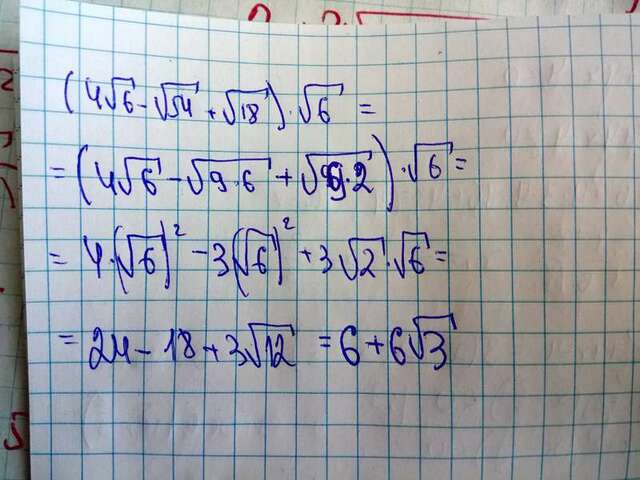 (4√6-√54+√18)·√6 =
= (4√6-√9·6+√9·2)·√6 =
= 4·(√6)²-3(√6)²+3√2·√6=
= 24-18+3√12 = 6+6√3